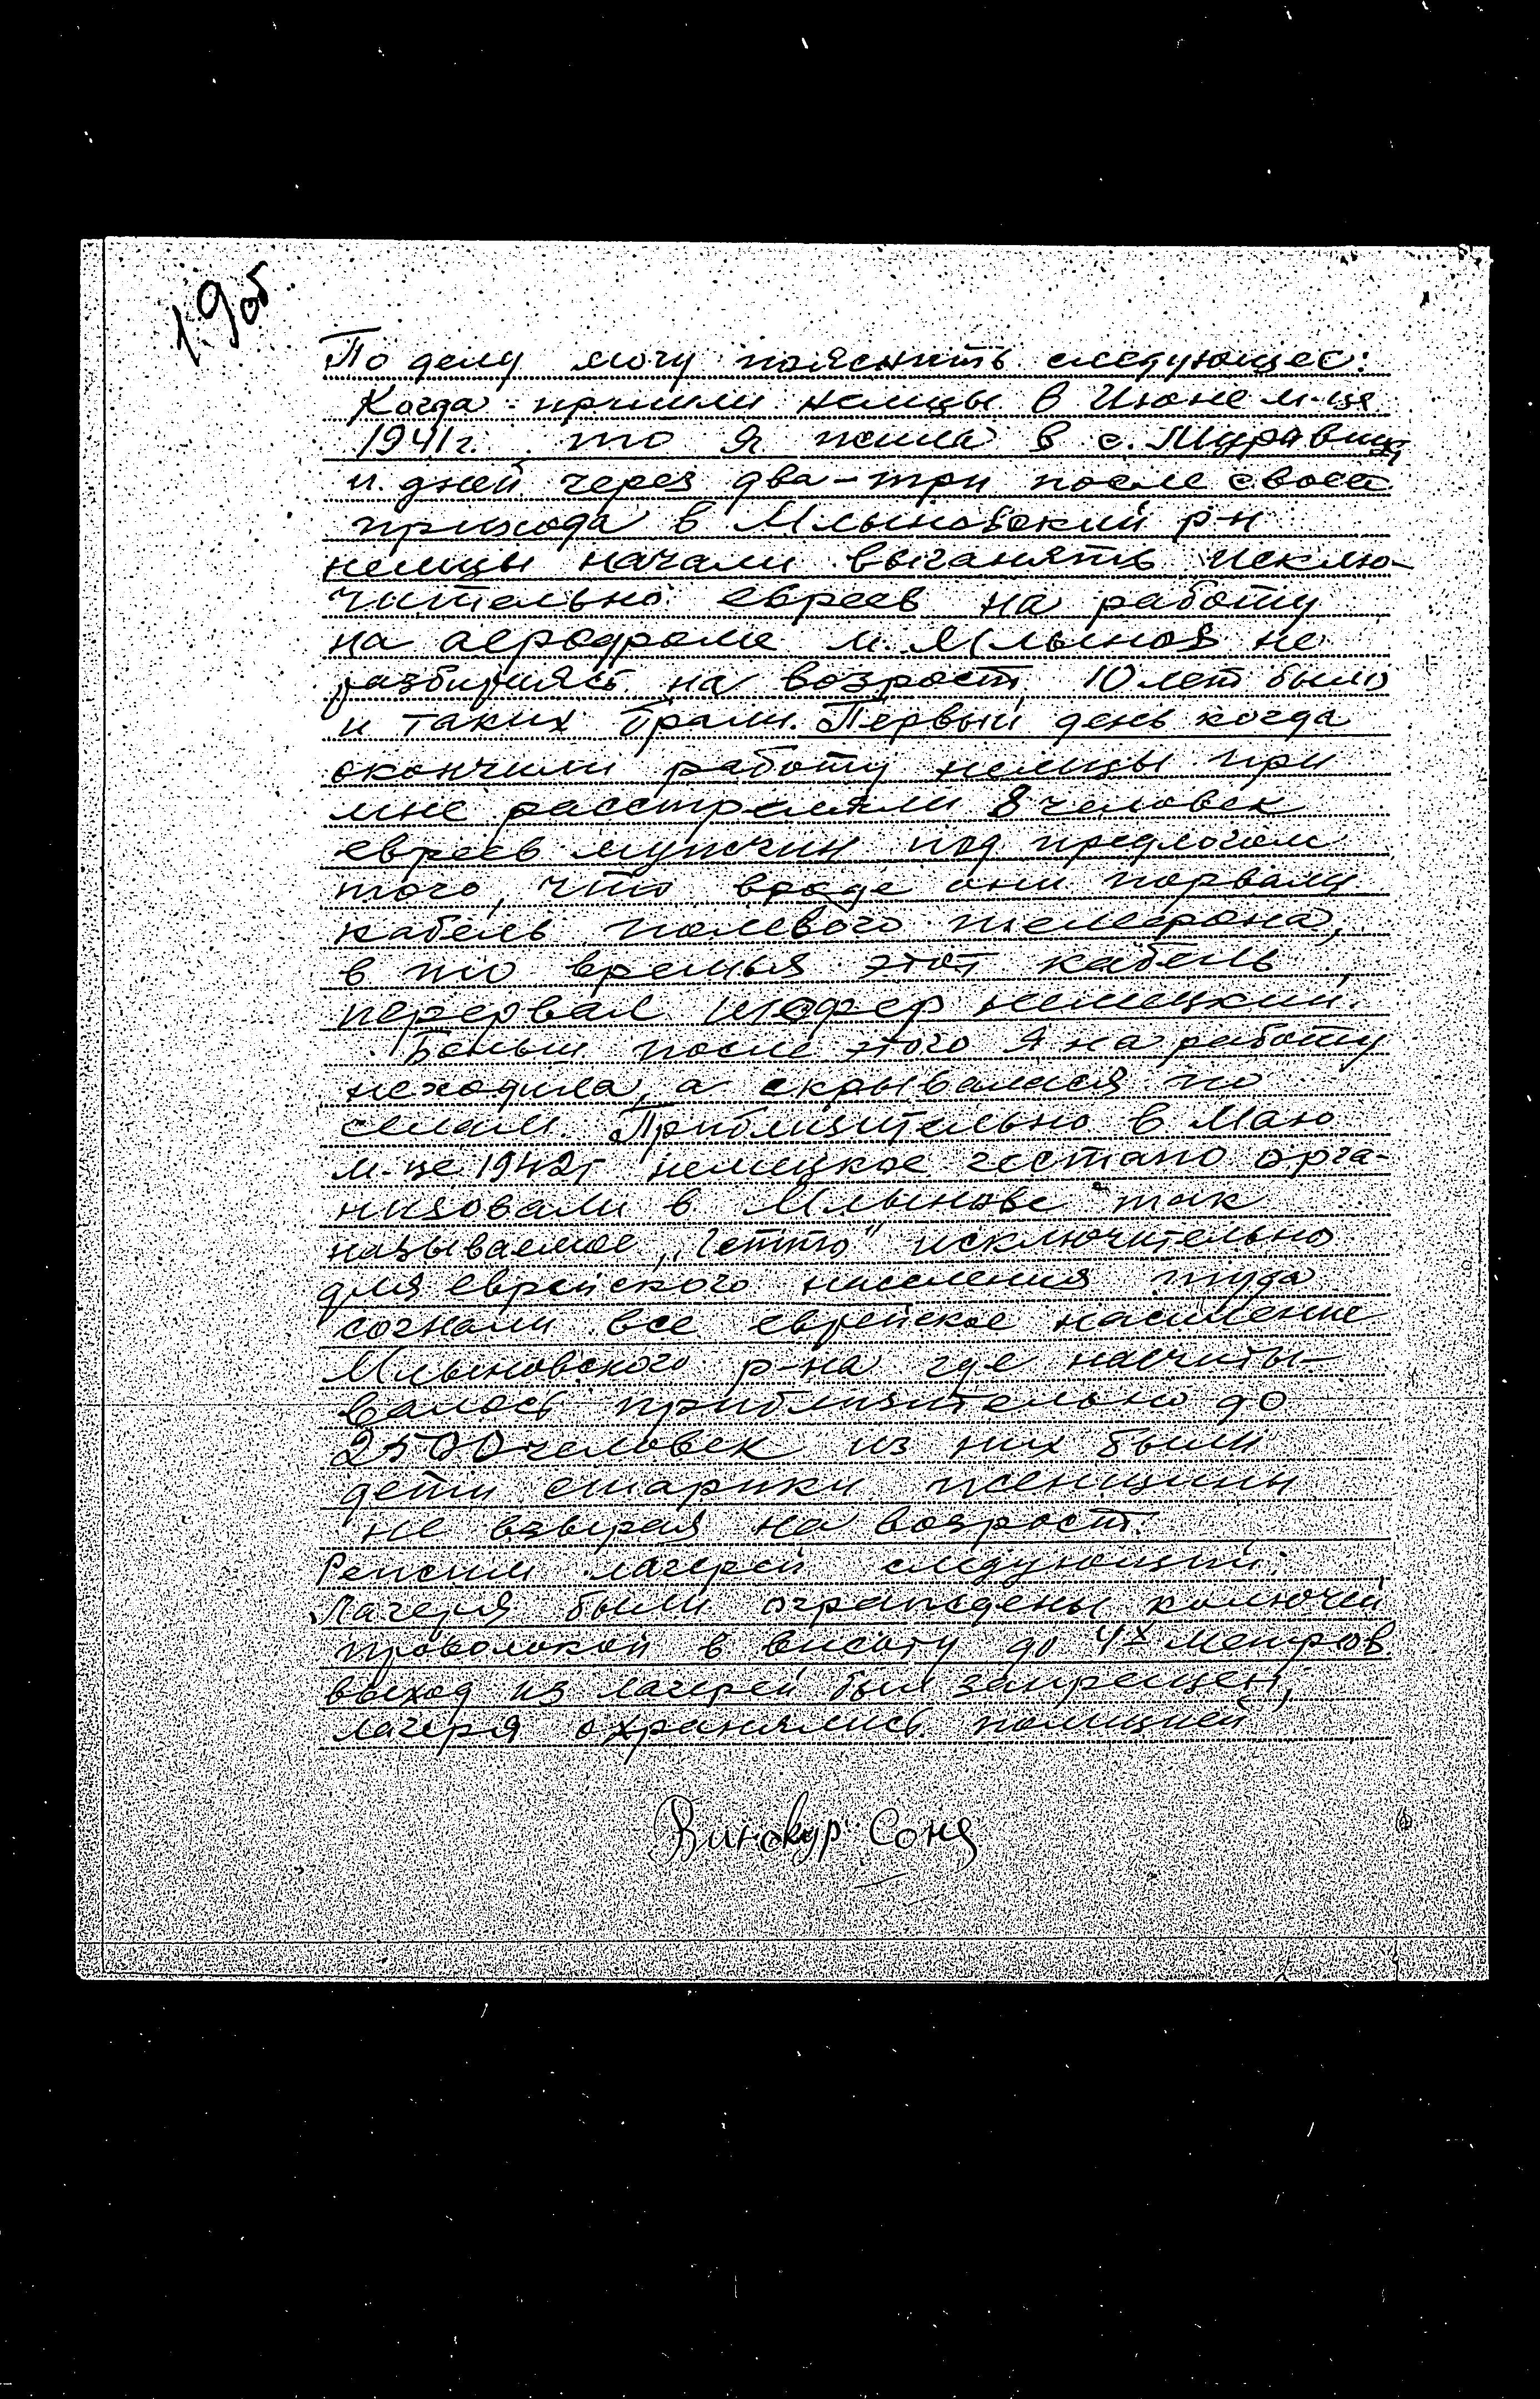 19об
По делу могу пояснить следующее:
Когда пришли немцы в Июне м-це
1941г. то я жила в с. Муравицы
и дней через два-три после своего
прихода в Млыновский р-н
немцы начали выганять исклю-
чительно евреев на работу
на аеродроме м. Млынов не
разбираясь на возраст, 10 лет было
и таких брали. Первый день когда
окончили работу немцы при
мне расстреляли 8 человек
евреев мужчин под предлогом
того, что вроде они порвали
кабель полевого телефона,
в то времья этот кабель
перервал шофер немецкий.
Больш после этого я на работу
неходила, а скрывалася по
селам. Приблизительно в Маю
м-це 1942г немецкое гестапо орга-
низовали в Млынове так
называемое „гетто" исключительно
для еврейского населения туда
согнали все еврейское население
Млыновского р-на где насчиты-
валось приблизительно до
2500 человек из них были
дети старики женщины
не взырая на возраст.
Режим лагерей следующий:
Лагеря были ограждены колючей
проволокой в высоту до 4х метров
выход из лагерей был запрещен,
лагеря охранялись полицией
Винокур Соня